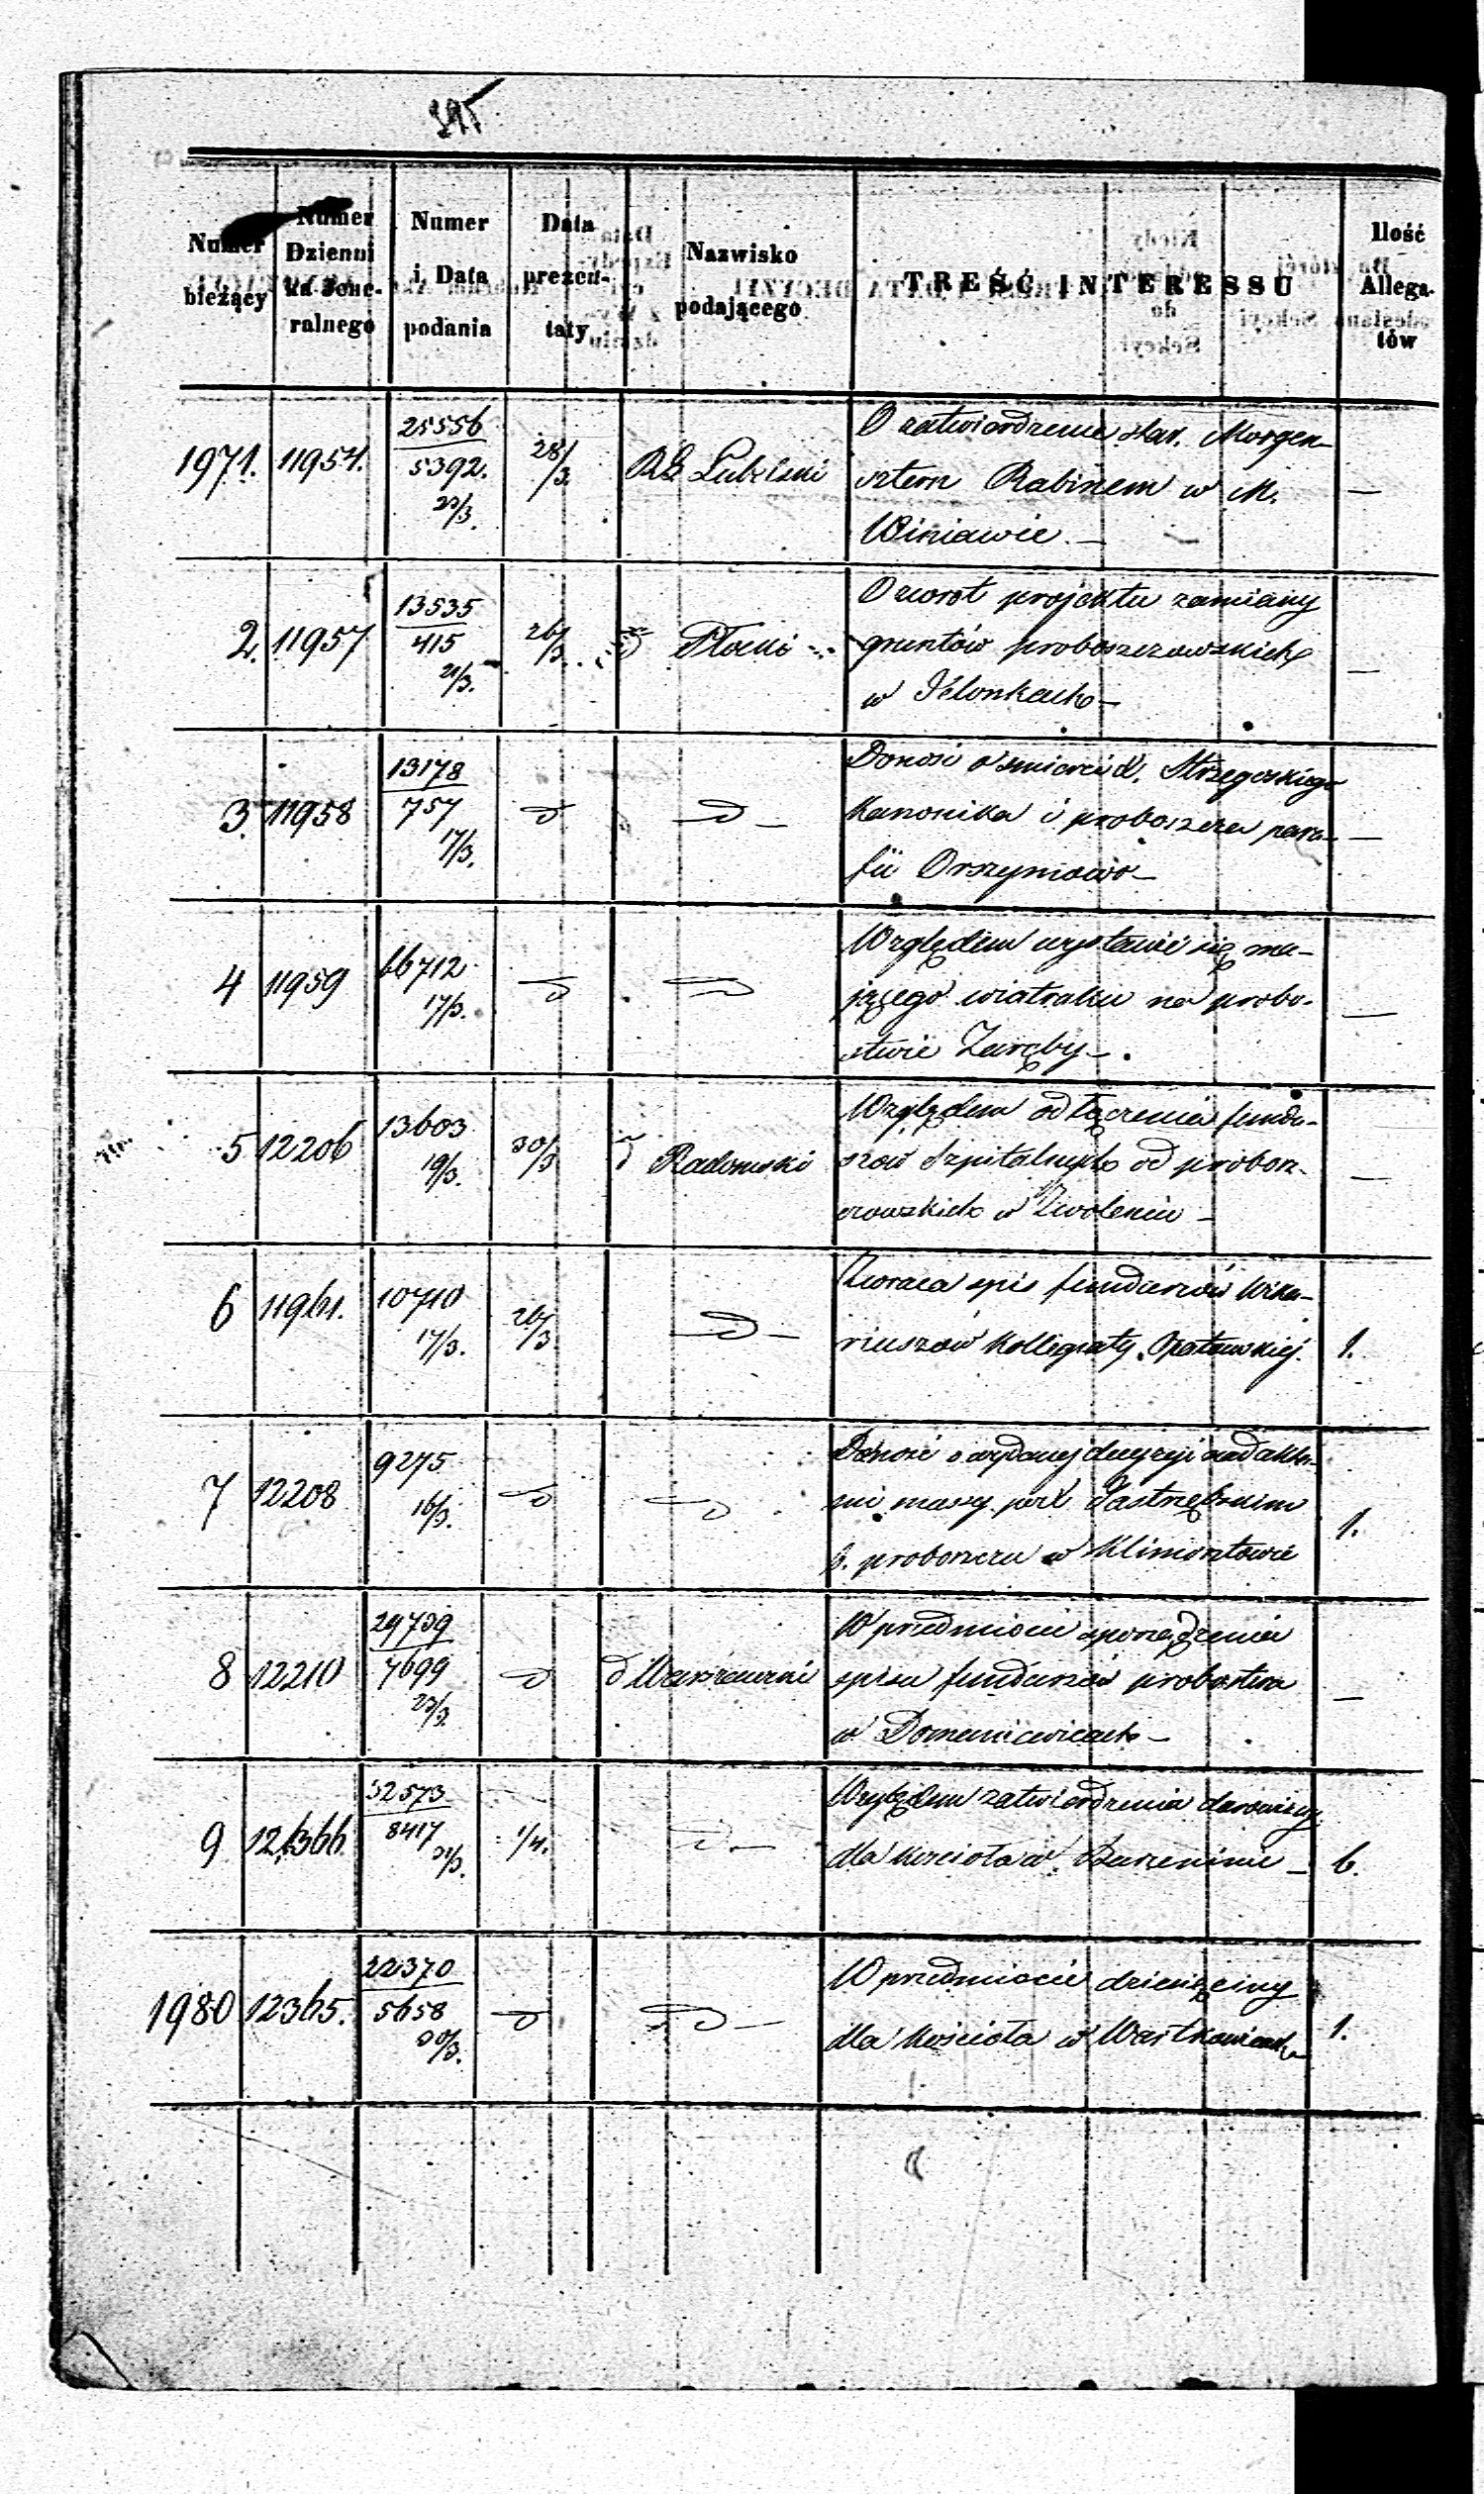 395
Numer bieżący
Numer Dzienni ka Jene- ralnego
Numer i Data podania
Data prezen- taty
Nazwisko podającego
TREŚĆ INTERESSU
Ilość Allega- tów
1971. 11954. 25556 / 5392. 23/3. 28/3. RG Lubelski O zatwierdzenie star. Morgen- —
sztern Rabinem w M.
Winiawie. —
2. 11957 13535 / 415 21/3. 26/3. Płocki O zwrot projektu zamiany —
gruntów proboszczowskich
w Jelonkach —
3. 11958 13178 / 757 17/3. d d — Donosi o śmierci X. Strzegockiego —
Kanonika i proboszcza para-
fii Orszymowo —
4 11959 66712 17/3. d d Względem wystawić się ma- —
jącego wiatraku na probo-
stwie Zaręby —.
5 12206 13603 19/3. 30/3 d Radomski Względem odłączenia fundu- —
szów Szpitalnych od probosz-
czowskich w Zwoleniu —
6 11961. 10710 17/3. 26/3 d — Zwraca spis funduszów Wika-
riuszów Kollegiaty Opatowskiej. 1.
7 12208 9275 16/3. d d Donosi o wydanej decyzyi nad akta-
mi massy po X Jastrzębskim 1.
b. proboszczu w Klimontowie
8 12210 29739 / 7699 23/3. d d Warszawski W przedmiocie sporządzenia
spisu funduszów probostwa —
w Domaniewicach —
9 12366 32573 / 8417 31/3. 1/4. d — Względem zatwierdzenia darowizny
dla kościoła w Burzeninie — 6.
1980 12365. 22370 / 5658 30/3. d d — W przedmiocie dziesięciny
dla kościoła w Wartkowicach 1.